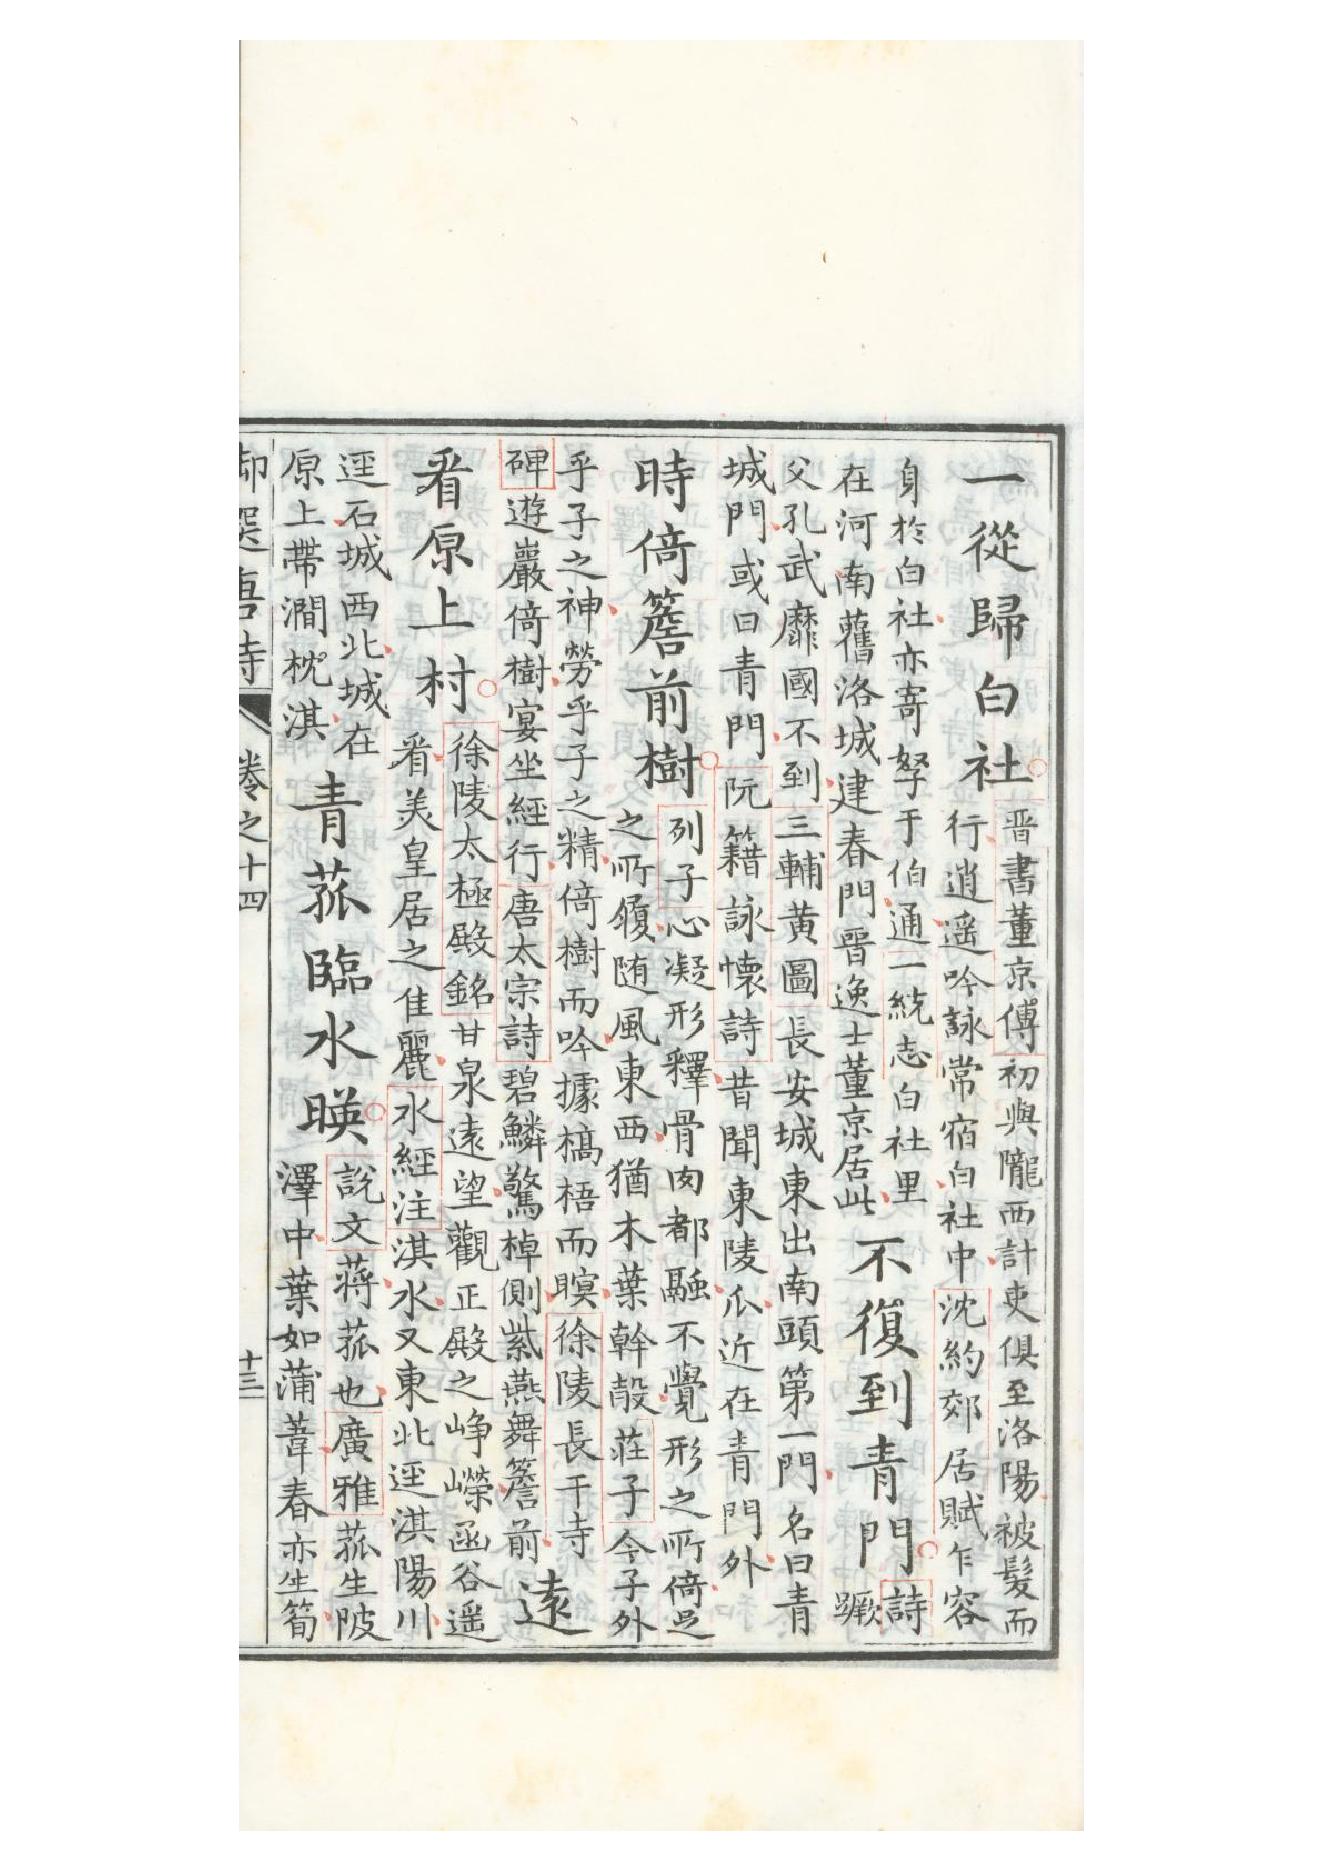 一從歸白社
晋書董京傅初與隴西計吏俱至洛陽被髮而
行逍遥吟詠常宿白社中沈約郊居賦乍容
身於白社亦寄孥于伯通一統志白社里
在河南舊洛城建春門晋逸士董京居此
不復到青門
詩
蹶
父孔武靡國不到三輔黄圖長安城東出南頭第一門名曰青
城門或曰青門阮籍詠懷詩昔聞東陵瓜近在青門外
時倚簷前樹
列子心凝形釋骨肉都融不覺形之所倚足
之所履随風東西猶木葉幹殻莊子今子外
乎子之神勞乎子之精倚樹而吟據槁梧而瞑徐陵長干寺
碑遊巖倚樹宴坐經行唐太宗詩碧鱗驚棹側紫燕舞簷前
逺
看原上村
徐陵太極殿銘甘泉逺望觀正殿之峥嶸函谷遥
看美皇居之佳麗水經注淇水又東北逕淇陽川
逕石城西北城在
原上帶澗枕淇
青菰臨水暎
説文蔣菰也廣雅菰生陂
澤中葉如蒲葦春亦生筍
御選唐詩 卷之十四 十三